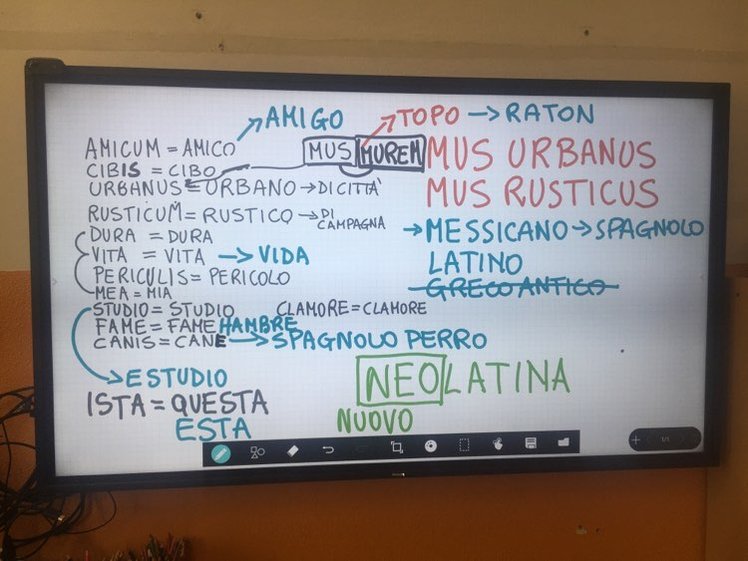 AMIGO
TOPO → RATON
AMICUM = AMICO
MUS MUREM
MUS URBANUS
CIBIS = CIBO
URBANUS = URBANO → DI CITTÀ
MUS RUSTICUS
RUSTICUM = RUSTICO → DI CAMPAGNA
DURA = DURA
→ MESSICANO → SPAGNOLO
VITA = VITA → VIDA
LATINO
PERICULIS = PERICOLO
GRECO ANTICO
MEA = MIA
STUDIO = STUDIO
CLAMORE = CLAMORE
FAME = FAME HAMBRE
CANIS = CANE → SPAGNOLO PERRO
ESTUDIO
NEOLATINA
ISTA = QUESTA
NUOVO
ESTA
1/1